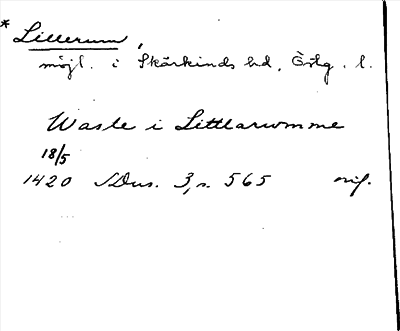 * Lillerum,
möjl. i Skärkinds hd, Östg. l.
Wasle i Littlarwmme
18/5
1420 SDns. 3, s. 565 orig.